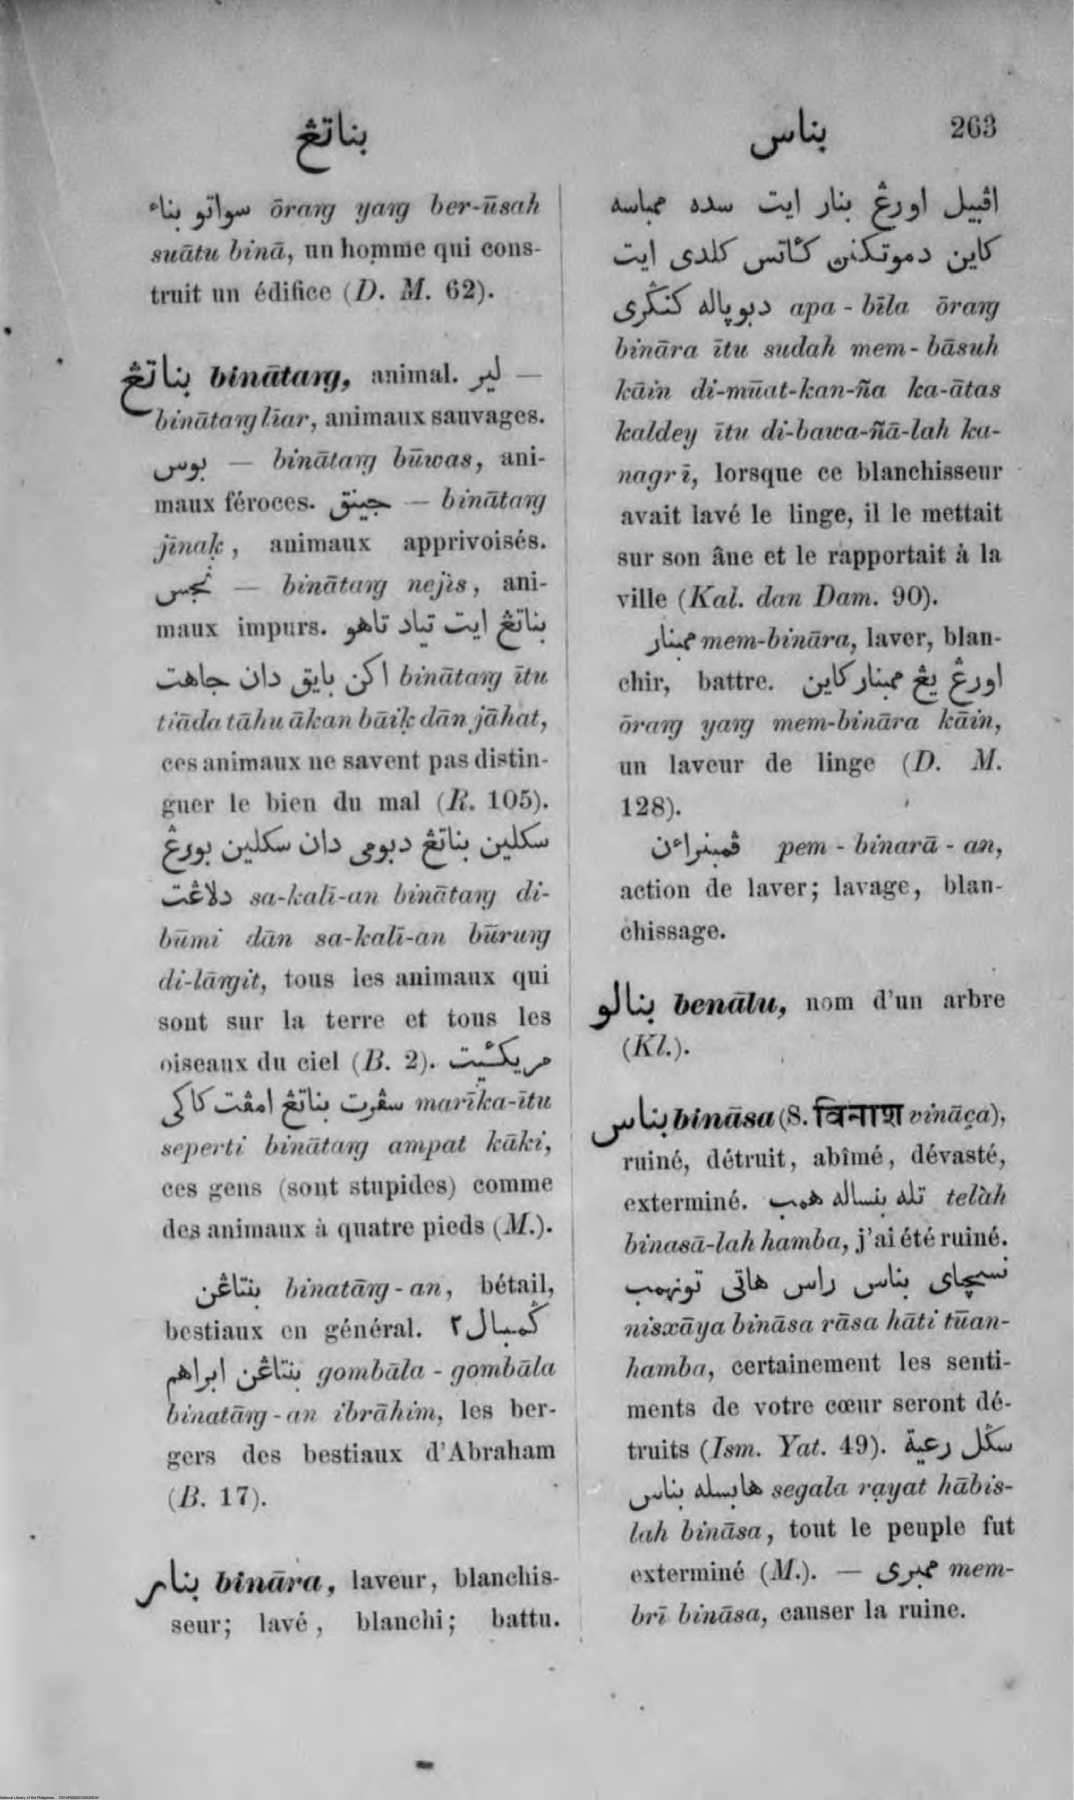 بناتڠ
بناس
263
سواتو بناء ōrang yang ber-ūsah
suātu binā, un homme qui cons-
truit un édifice (D. M. 62).
بناتڠ binātang, animal. لير —
binātang līar, animaux sauvages.
بوس — binātang būwas, ani-
maux féroces. جينق — binātang
jīnaḳ, animaux apprivoisés.
نجس — binātang nejis, ani-
maux impurs. بناتڠ ايت تياد تاهو
اكن بايق دان جاهت binātang ītu
tiāda tāhu ākan bāiḳ dān jāhat,
ces animaux ne savent pas distin-
guer le bien du mal (R. 105).
سكلين بناتڠ دبومي دان سكلين بورڠ
دلاڠت sa-kalī-an binātang di-
būmi dān sa-kalī-an būrung
di-lāngit, tous les animaux qui
sont sur la terre et tous les
oiseaux du ciel (B. 2). مريكئيت
سڤرت بناتڠ امڤت كاكي marīka-ītu
seperti binātang ampat kāki,
ces gens (sont stupides) comme
des animaux à quatre pieds (M.).
بنتاڠن binatāng-an, bétail,
bestiaux en général. كمبال٢
بنتاڠن ابراهم gombāla-gombāla
binatāng-an ibrāhim, les ber-
gers des bestiaux d'Abraham
(B. 17).
بنار bināra, laveur, blanchis-
seur; lavé, blanchi; battu.
اڤبيل اورڠ بنار ايت سده ممباسه
كاين دموتكنن كئاتس كلدي ايت
دبوياله كنڬري apa-bīla ōrang
bināra ītu sudah mem-bāsuh
kāin di-mūat-kan-ña ka-ātas
kaldey ītu di-bawa-ñā-lah ka-
nagrī, lorsque ce blanchisseur
avait lavé le linge, il le mettait
sur son âne et le rapportait à la
ville (Kal. dan Dam. 90).
ممبنار mem-bināra, laver, blan-
chir, battre. اورڠ يڠ ممبنار كاين
ōrang yang mem-bināra kāin,
un laveur de linge (D. M.
128).
ڤمبنراءن pem-binarā-an,
action de laver; lavage, blan-
chissage.
بنالو benālu, nom d'un arbre
(Kl.).
بناس bināsa (S. विनाश vināça),
ruiné, détruit, abîmé, dévasté,
exterminé. تله بنساله همب telàh
binasā-lah hamba, j'ai été ruiné.
نسيچاي بناس راس هاتي تونهمب
nisxāya bināsa rāsa hāti tūan-
hamba, certainement les senti-
ments de votre cœur seront dé-
truits (Ism. Yat. 49). سڬل رعية
هابسله بناس segala rạyat hābis-
lah bināsa, tout le peuple fut
exterminé (M.). — ممبري mem-
brī bināsa, causer la ruine.